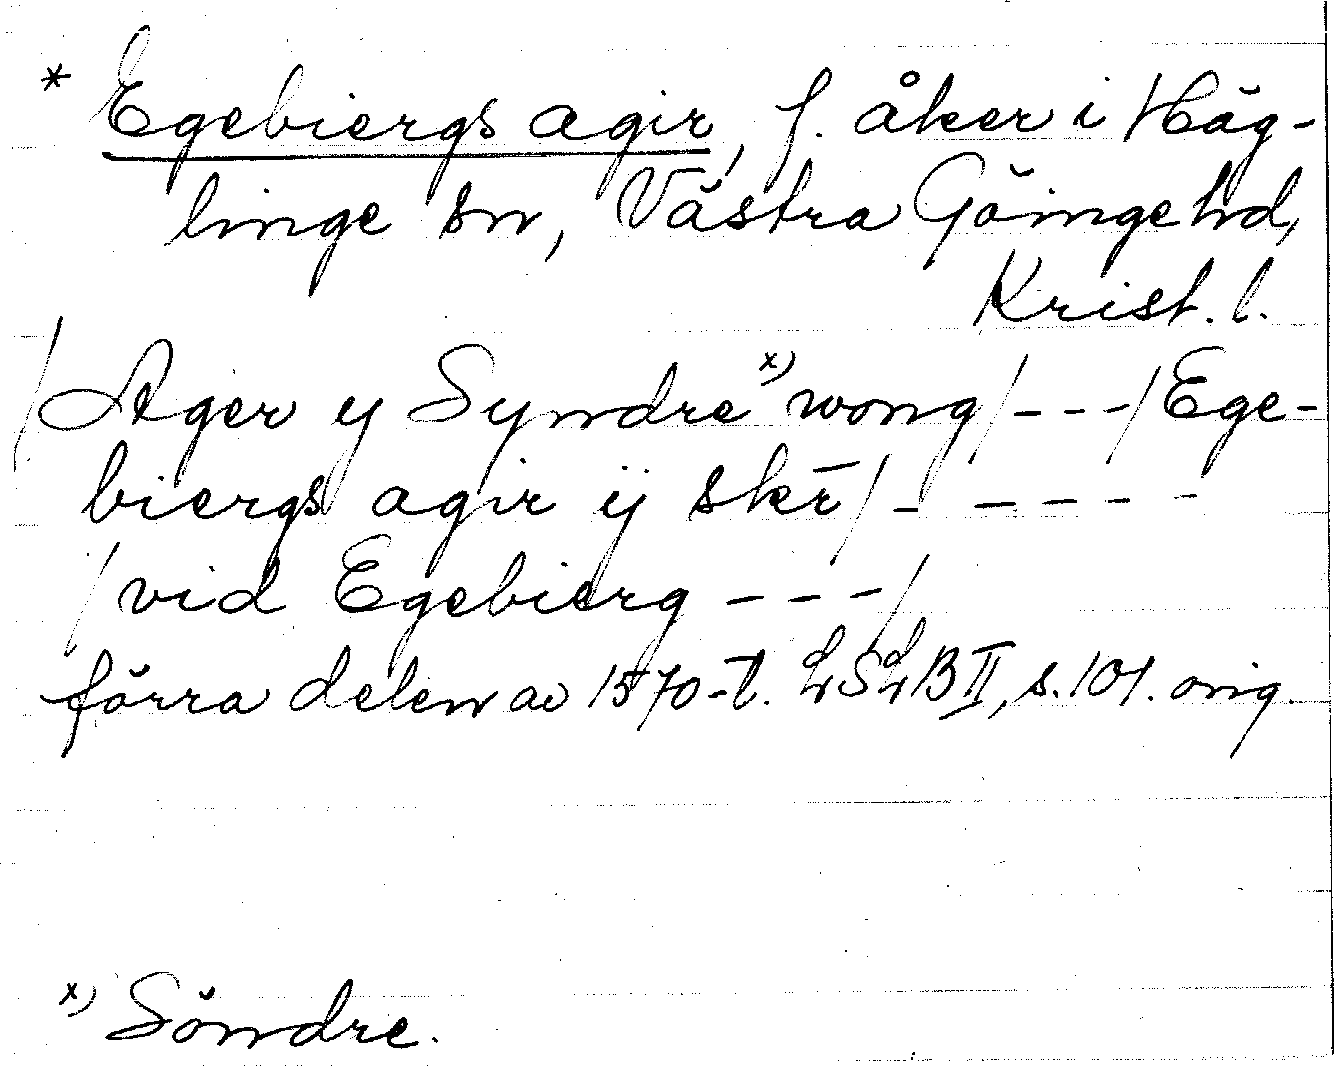 * Egebiergs agir, f. åker i Häg-
linge sn, Västra Göinge hd,
Krist. l.
/Ager y Syndre x) wong/---/Ege-
biergs agir ij skr̄/- - - - -
/vid Egebierg ---/
förra delen av 1570-t. LSLB II, s. 101. orig.
x) Söndre.